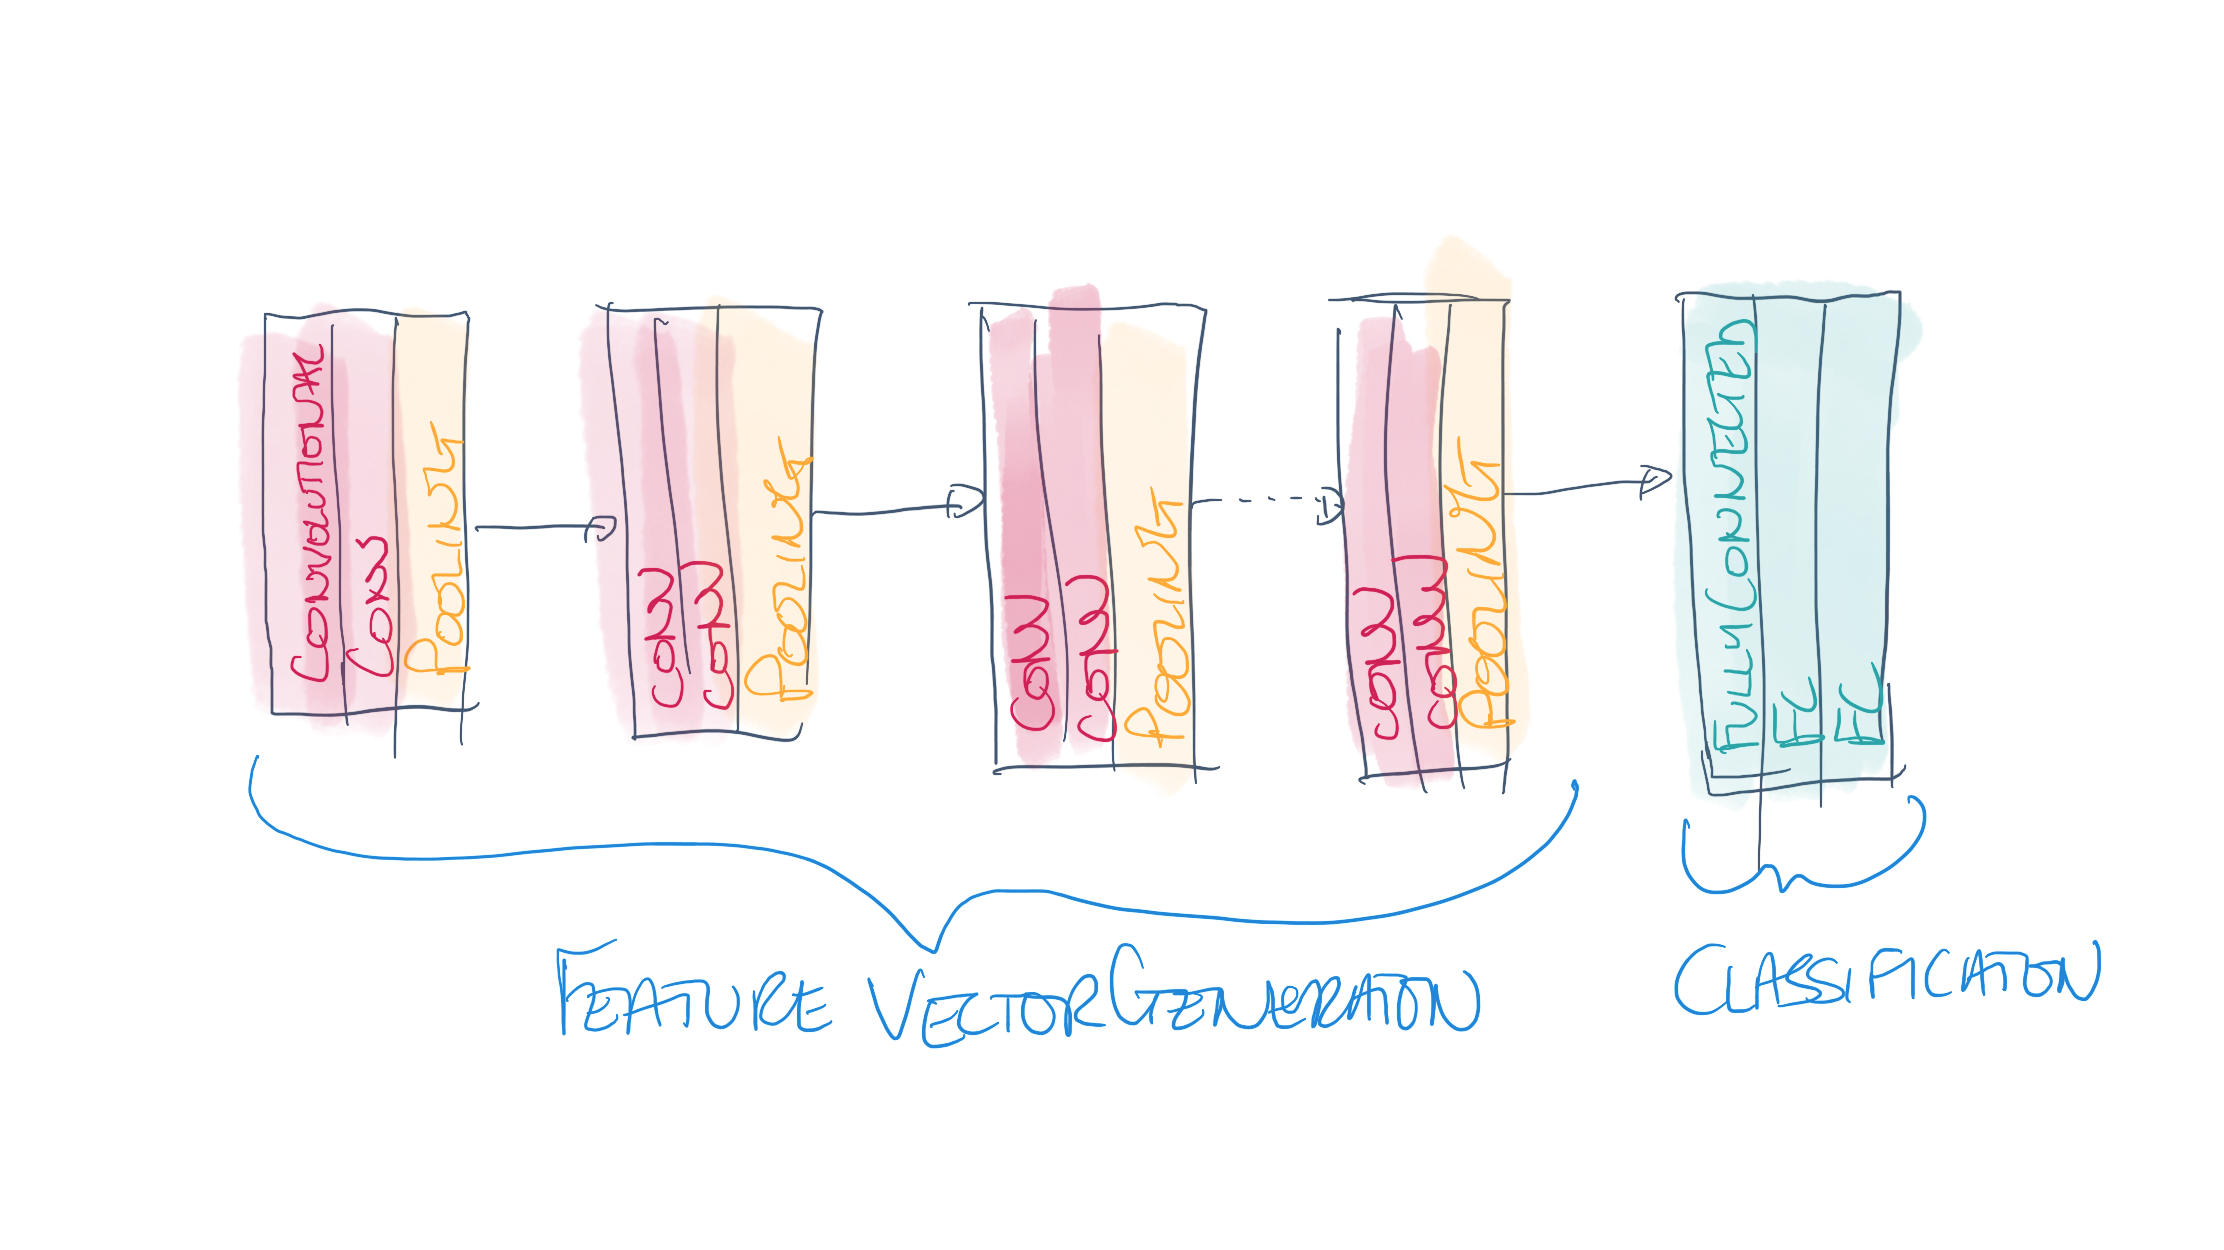 CONVOLUTIONAL
CONV
POOLING
CONV
CONV
POOLING
CONV
CONV
POOLING
CONV
CONV
POOLING
FULLY CONNECTED
FC
FC
FEATURE VECTOR GENERATION
CLASSIFICATION